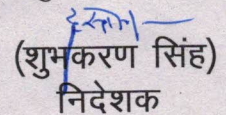 (शुभकरण सिंह)
निदेशक